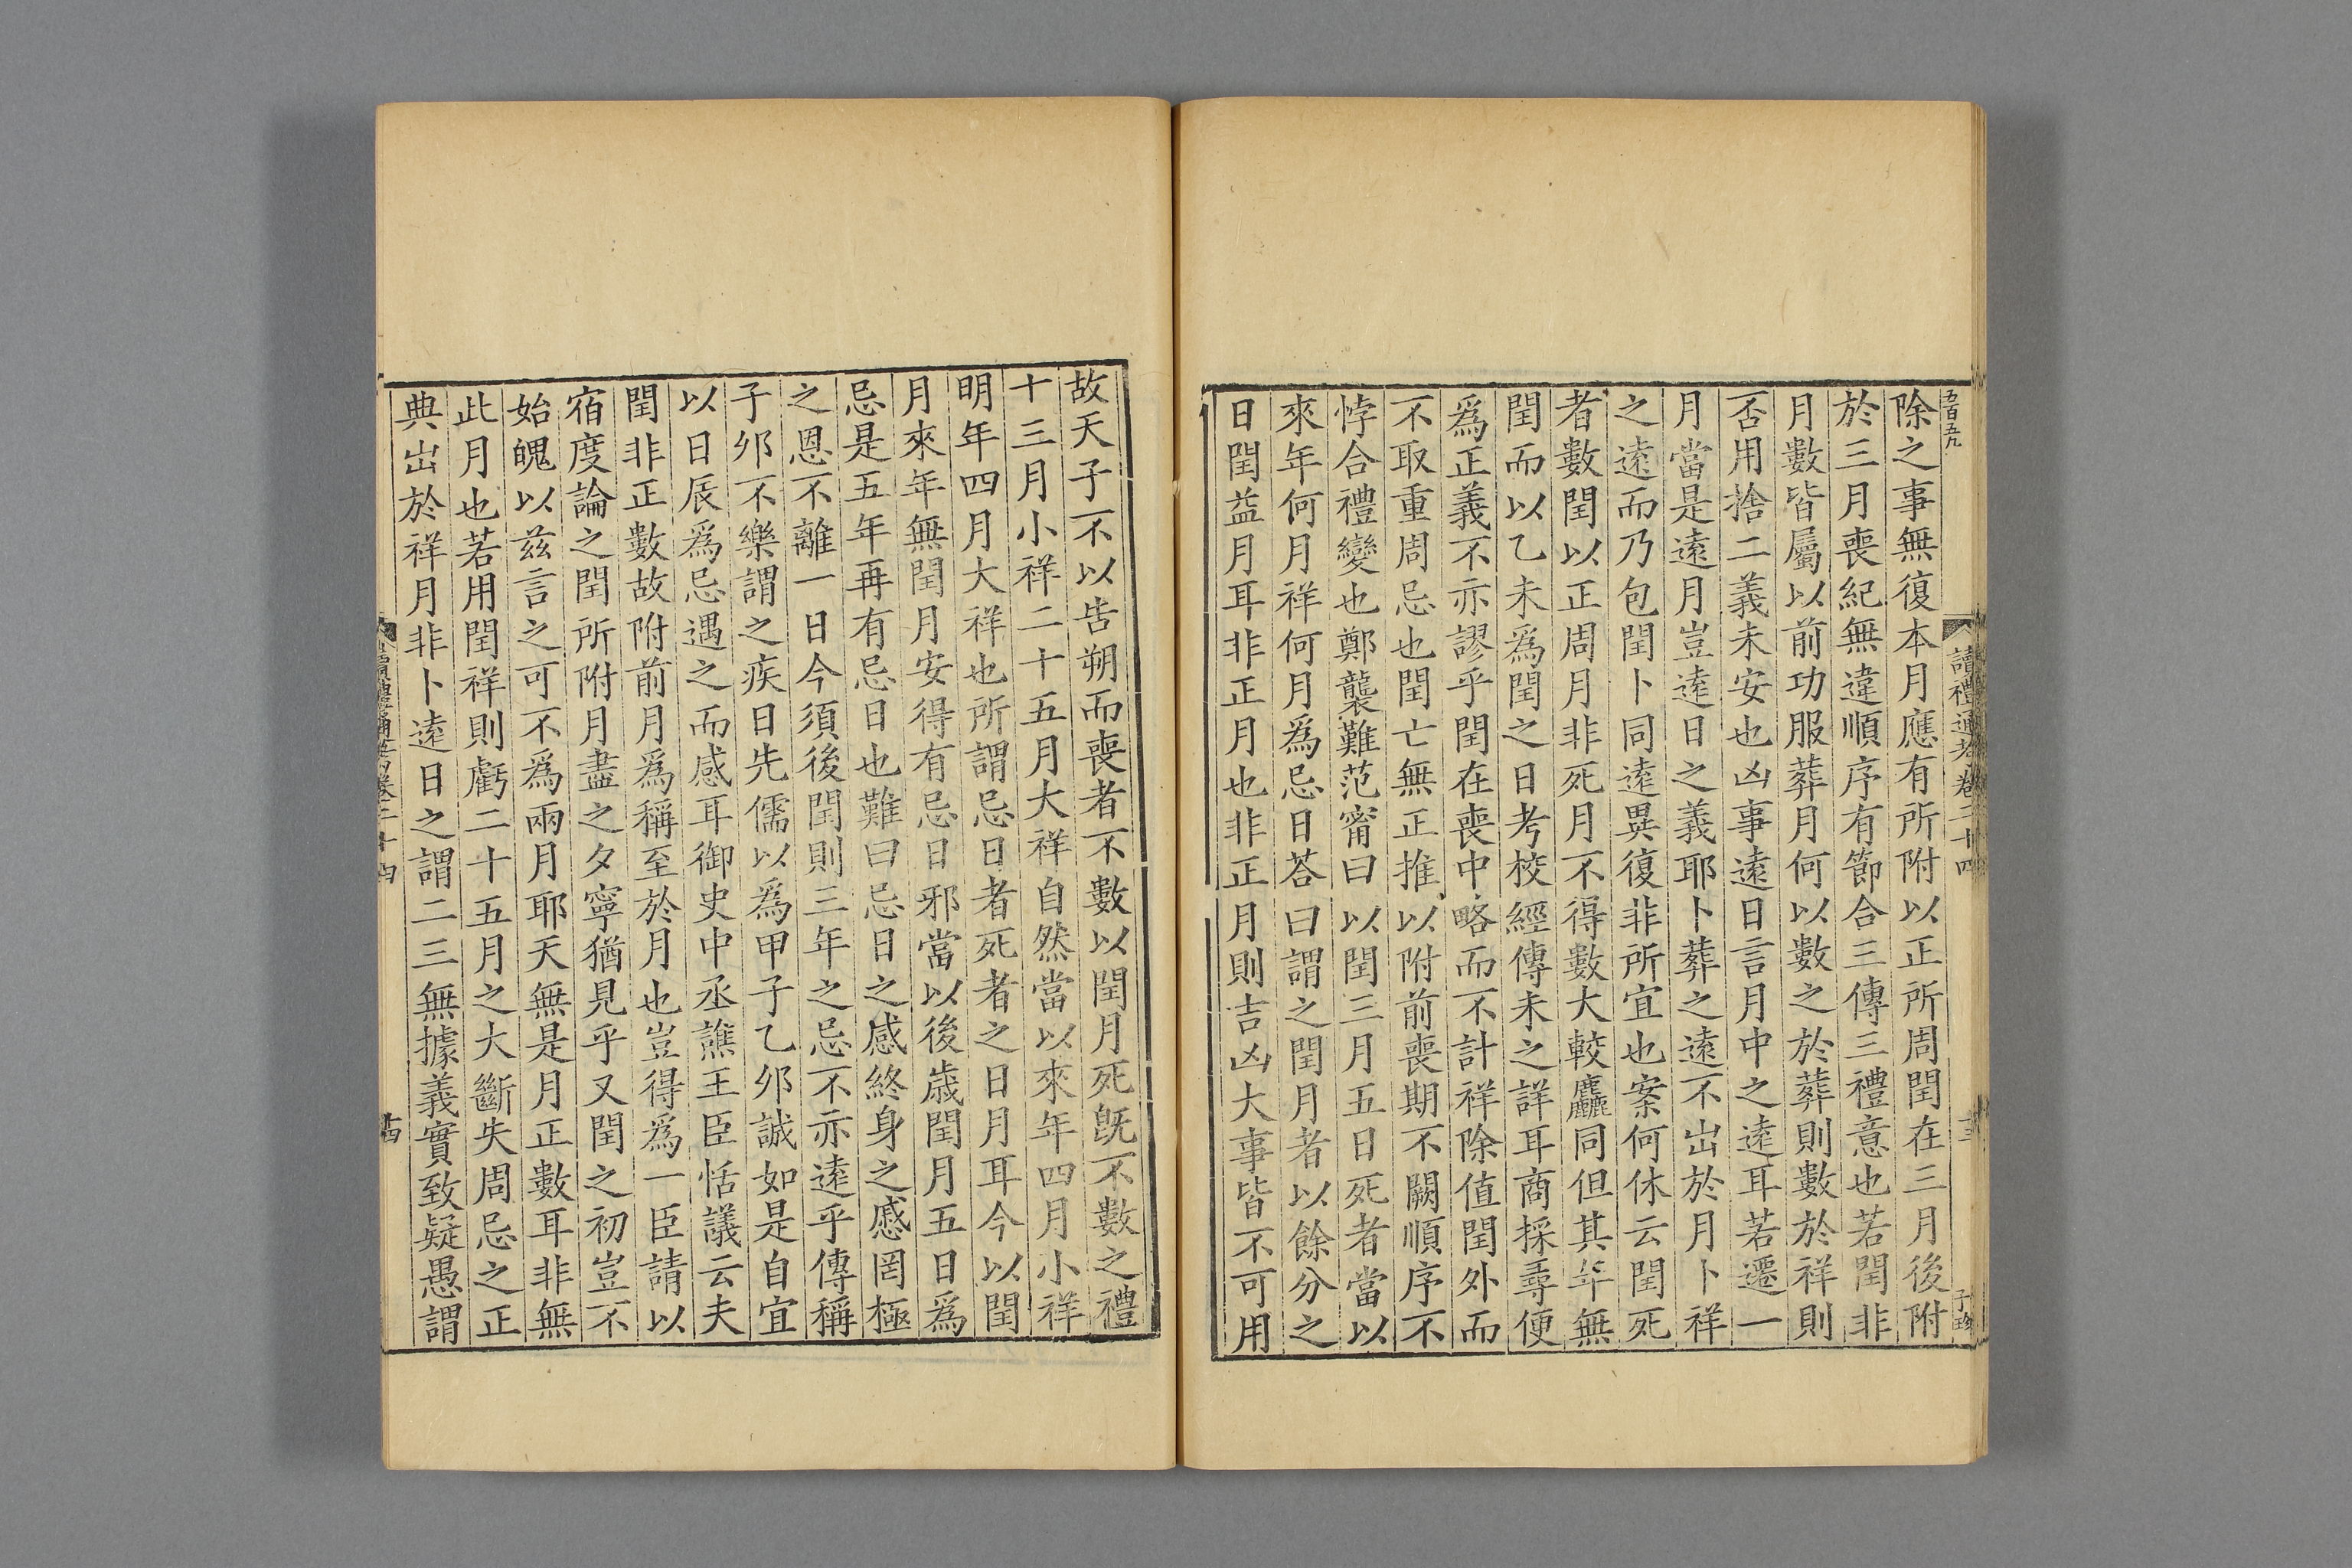 五百五九
讀禮通考卷二十四
除之事無復本月應有所附以正所周閏在三月後附
於三月喪紀無違順序有節合三傳三禮意也若閏非
月數皆屬以前功服葬月何以數之於葬則數於祥則
否用捨二義未安也凶事遠日言月中之遠耳若遷一
月當是遠月豈遠日之義耶卜葬之遠不出於月卜祥
之遠而乃包閏卜同遠異復非所宜也案何休云閏死
者數閏以正周月非死月不得數大較麤同但其年無
閏而以乙未爲閏之日考校經傳未之詳耳商採尋便
爲正義不亦謬乎閏在喪中略而不計祥除值閏外而
不取重周忌也閏亡無正推以附前喪期不闕順序不
悖合禮變也鄭襲難范甯曰以閏三月五日死者當以
來年何月祥何月爲忌日荅曰謂之閏月者以餘分之
日閏益月耳非正月也非正月則吉凶大事皆不可用
故天子不以告朔而喪者不數以閏月死旣不數之禮
十三月小祥二十五月大祥自然當以來年四月小祥
明年四月大祥也所謂忌日者死者之日月耳今以閏
月來年無閏月安得有忌日邪當以後歲閏月五日爲
忌是五年再有忌日也難曰忌日之感終身之慼罔極
之恩不離一日今須後閏則三年之忌不亦遠乎傳稱
子卯不樂謂之疾日先儒以爲甲子乙卯誠如是自宜
以日辰爲忌遇之而感耳御史中丞譙王臣恬議云夫
閏非正數故附前月爲稱至於月也豈得爲一臣請以
宿度論之閏所附月盡之夕寧猶見乎又閏之初豈不
始魄以兹言之可不爲兩月耶天無是月正數耳非無
此月也若用閏祥則虧二十五月之大斷失周忌之正
典出於祥月非卜遠日之謂二三無據義實致疑愚謂